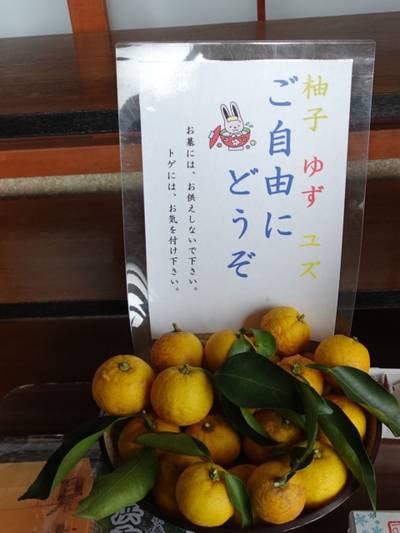 柚子 ゆず ユズ
ご自由に
どうぞ
お墓には、お供えしないで下さい。
トゲには、お気を付け下さい。